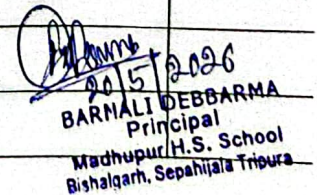 20/5/2026
BARNALI DEBBARMA
Principal
Madhupur H.S. School
Bishalgarh, Sepahijala Tripura